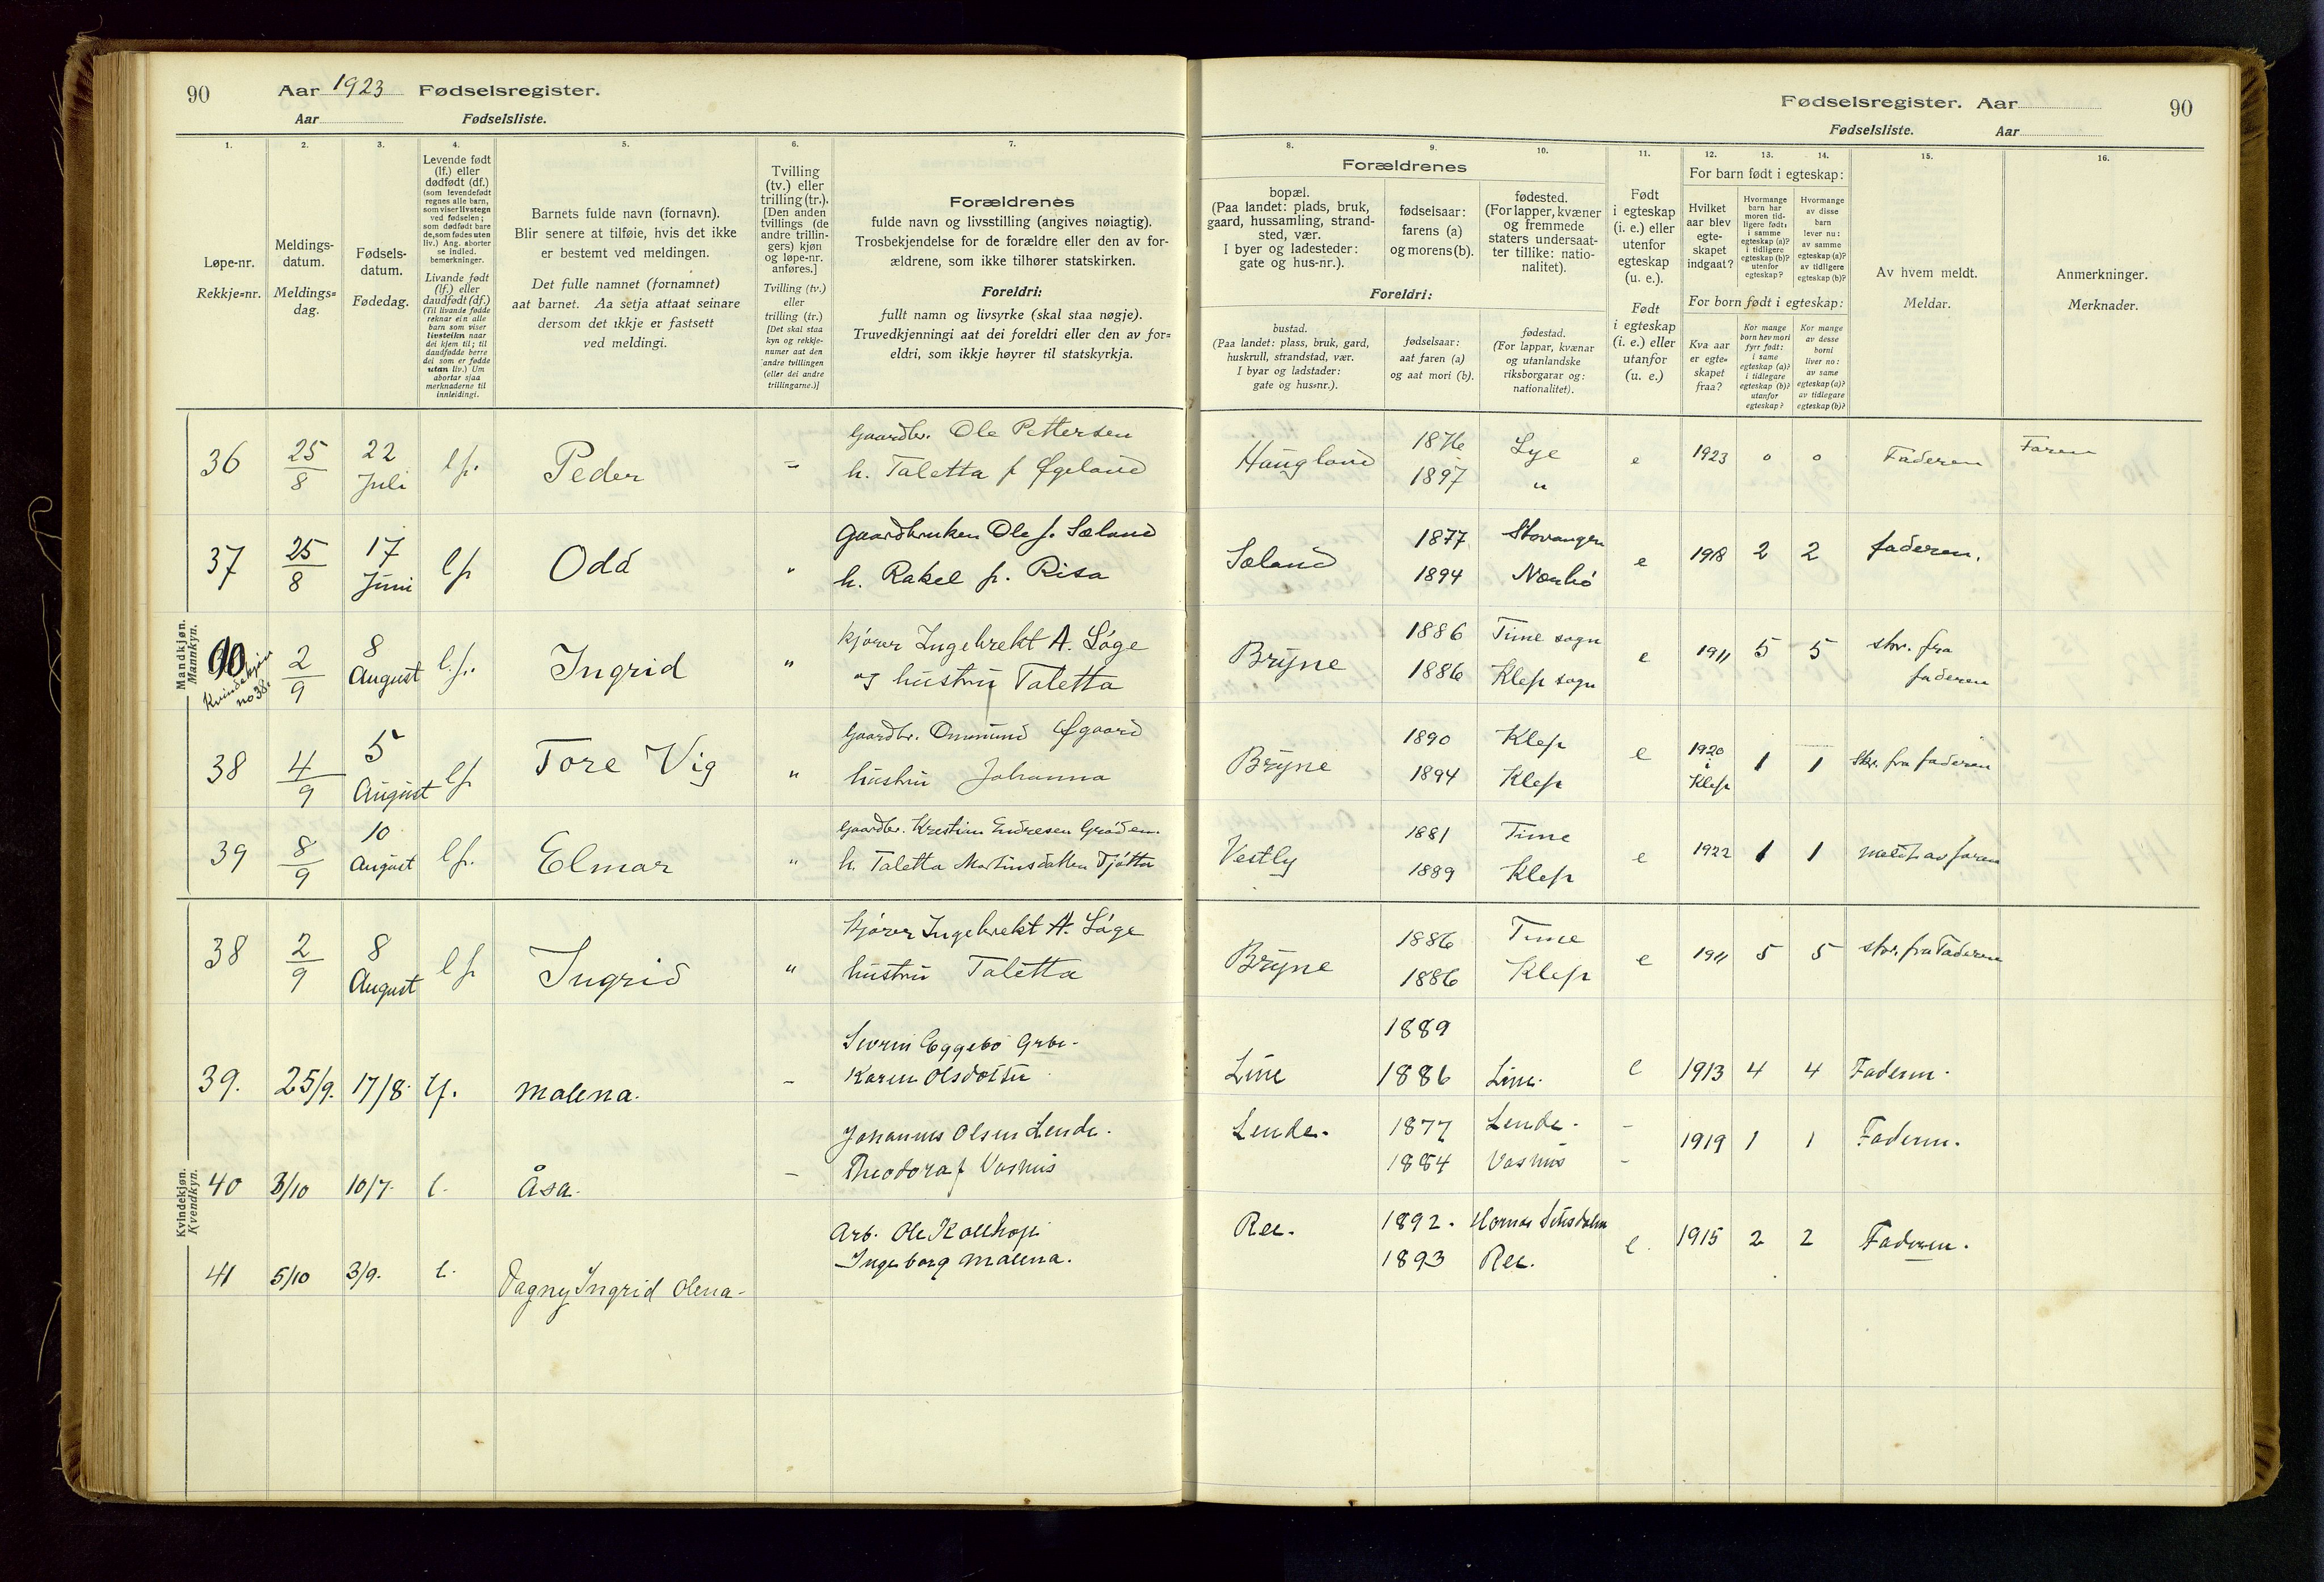 90 Aar 1923 Fødselsregister.
Aar Fødselsliste.
Fødselsregister. Aar 90
Fødselsliste. Aar
1. 2. 3. 4. 5. 6. 7. 8. 9. 10. 11. 12. 13. 14. 15. 16.
Løpe-nr.
Rekkje=nr.
Meldings-
datum.
Meldings=
dag.
Fødsels-
datum.
Fødedag.
Levende født
(lf.) eller
dødfødt (df.)
(som levendefødt
regnes alle barn,
som viser livstegn
ved fødselen;
som dødfødt bare
de, som fødes uten
liv.) Ang. aborter
se indled.
bemerkninger.
Livande født
(lf.) eller
daudfødt (df.)
(Til livande fødde
reknar ein alle
barn som viser
livsteikn naar
dei kjem til; til
daudfødde berre
dei som er fødde
utan liv.) Um
abortar sjaa
merknaderne til
innleidingi.
Barnets fulde navn (fornavn).
Blir senere at tilføie, hvis det ikke
er bestemt ved meldingen.
Det fulle namnet (fornamnet)
aat barnet. Aa setja attaat seinare
dersom det ikkje er fastsett
ved meldingi.
Tvilling
(tv.) eller
trilling (tr.).
[Den anden
tvillings (de
andre trillin-
gers) kjøn
og løpe-nr.
anføres.]
Tvilling (tv.)
eller
trilling (tr.)
[Det skal staa
kyn og rekkje-
numer aat den
andre tvillingen
(eller dei andre
trillingarne.)]
Forældrenes
fulde navn og livsstilling (angives nøiagtig).
Trosbekjendelse for de forældre eller den av for-
ældrene, som ikke tilhører statskirken.
Foreldri:
fullt namn og livsyrke (skal staa nøgje).
Truvedkjenningi aat dei foreldri eller den av for=
eldri, som ikkje høyrer til statskyrkja.
Forældrenes
bopæl.
(Paa landet: plads, bruk,
gaard, hussamling, strand-
sted, vær.
I byer og ladesteder:
gate og hus-nr.).
fødselsaar:
farens (a)
og morens (b).
fødested.
(For lapper, kvæner
og fremmede
staters undersaat-
ter tillike: natio-
nalitet).
Foreldri:
bustad.
(Paa landet: plass, bruk, gard,
huskrull, strandstad, vær.
I byar og ladstader:
gate og hus=nr.).
fødselsaar:
aat faren (a)
og aat mori (b).
fødestad.
(For lappar, kvænar
og utanlandske
riksborgarar og:
nationalitet).
Født
i egteskap
(i. e.) eller
utenfor
egteskap
(u. e.).
Født
i egteskap
(i. e.) eller
utanfor
(u. e.)
For barn født i egteskap:
Hvilket
aar blev
egte-
skapet
indgaat?
Hvormange
barn har
moren tid-
ligere født:
i samme
egteskap (a)?
i tidligere
egteskap (b)?
utenfor
egteskap?
Hvormange
av disse
barn
lever nu:
av samme
egteskap (a)?
av tidligere
egteskap (b)?
For born født i egteskap:
Kva aar
er egte=
skapet
fraa?
Kor mange
born hev mori
fyrr født:
i same
egteskap (a)?
i tidlegare
egteskap (b)?
utanfor
egteskap?
Kor mange
av desse
borni
liver no:
av same
egteskap (a)?
av tidlegare
egteskap (b)?
Av hvem meldt.
Meldar.
Anmerkninger.
Merknader.
Mandkjøn.
Mannkyn.
36 25/8 22 Juli lf. Peder = Gaardbr. Ole Pettersen
h. Taletta f Øgeland
Haugland 1876 Lye e 1923 0 0 Faderen Faren
1897 "
37 25/8 17 Juni lf Odd " Gaardbruken Ole J. Sæland
h. Rakel f. Risa
Sæland 1877 Stavanger e 1918 2 2 faderen.
1894 Nærbö
90 Kvindekjön no 38. 2/9 8 August l.f. Ingrid " kjörer Ingebrekt A. Löge
og hustru Taletta
Bryne 1886 Time sogn e 1911 5 5 skr. fra
1886 Klep sogn faderen
38 4/9 5 August lf Tore Vig " Gaardbr. Ommund Øgaard
hustru Johanna
Bryne 1890 Klep e 1920 i Klep 1 1 Skr. fra faderen
1894 Klep
39 8/9 10 August lf. Elmar " Gaardbr. Kristian Endresen Gröden.
h. Taletta Martinsdatten Tjötta
Vestly 1881 Time e 1922 1 1 meldt av faren
1889 Klep
Kvindekjøn.
Kvendkyn.
38 2/9 8 August lf Ingrid " Kjörer Ingebrekt A. Löge
hustru Taletta
Bryne 1886 Time e 1911 5 5 skr. fra Faderen
1886 Klep
39. 25/9. 17/8. lf. Malena. - Sevrin Eggebö Grbr.
Karen Olsdotter
Line 1889
1886 Line. e 1913 4 4 Faderen.
40 3/10 10/7. l. Åsa. - Johannes Olsen Lende.
Theodora f
Lende. 1877 Lende. - 1919 1 1 Faderen.
1884 -
41 5/10 3/9. l. Dagny Ingrid Olena. Arb. Ole Kallhop
Ingeborg Malena.
Ree. 1892. e. 1915 2 2 Faderen.
1893 Ree.